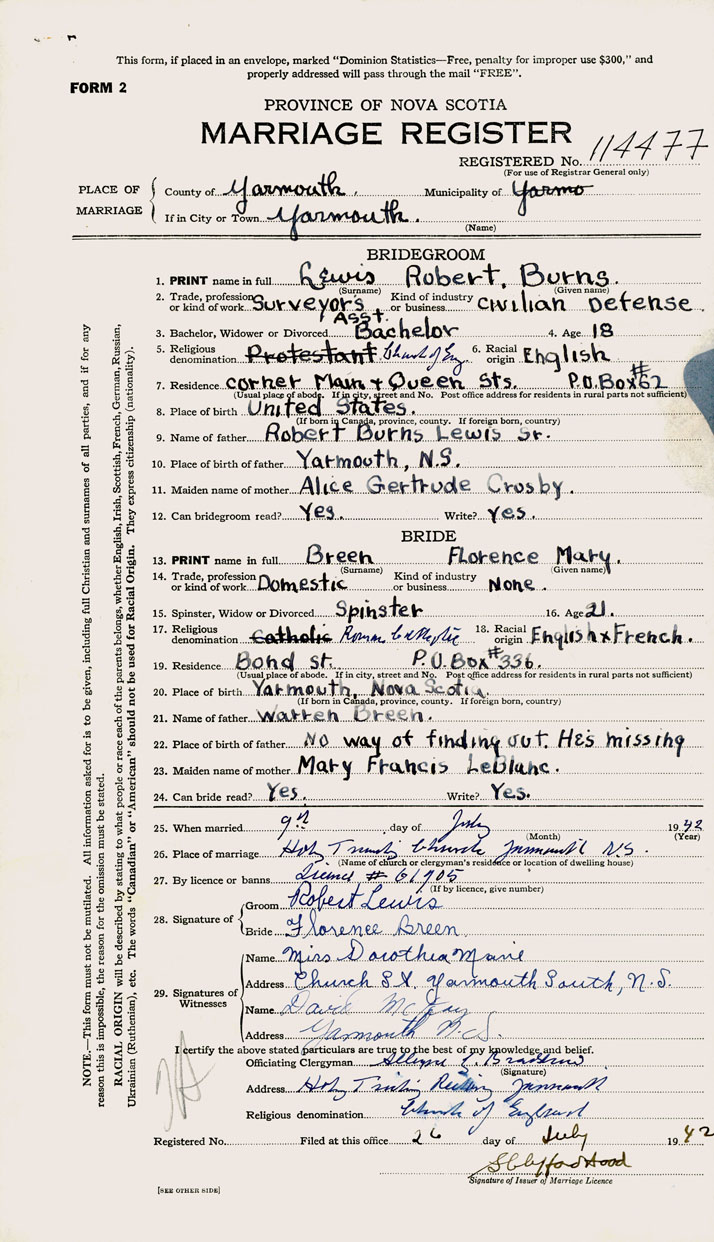 This form, if placed in an envelope, marked “Dominion Statistics—Free, penalty for improper use $300,” and
properly addressed will pass through the mail “FREE”.
FORM 2
PROVINCE OF NOVA SCOTIA
MARRIAGE REGISTER
REGISTERED No. 114477
(For use of Registrar General only)
PLACE OF MARRIAGE
County of Yarmouth. Municipality of Yarmo
If in City or Town Yarmouth.
(Name)
BRIDEGROOM
1. PRINT name in full Lewis Robert, Burns.
(Surname) (Given name)
2. Trade, profession or kind of work Surveyor's Asst. Kind of industry or business Civilian Defense.
3. Bachelor, Widower or Divorced Bachelor 4. Age 18
5. Religious denomination Protestant Church of Eng. 6. Racial origin English
7. Residence corner Main + Queen Sts. P.O. Box #62
(Usual place of abode. If in city, street and No. Post office address for residents in rural parts not sufficient)
8. Place of birth United States.
(If born in Canada, province, county. If foreign born, country)
9. Name of father Robert Burns Lewis Sr.
10. Place of birth of father Yarmouth, N.S.
11. Maiden name of mother Alice Gertrude Crosby.
12. Can bridegroom read? Yes. Write? Yes.
BRIDE
13. PRINT name in full Breen Florence Mary.
(Surname) (Given name)
14. Trade, profession or kind of work Domestic Kind of industry or business None.
15. Spinster, Widow or Divorced Spinster 16. Age 21.
17. Religious denomination Catholic Roman Catholic 18. Racial origin English & French.
19. Residence Bond st. P.O. Box #336.
(Usual place of abode. If in city, street and No. Post office address for residents in rural parts not sufficient)
20. Place of birth Yarmouth, Nova Scotia.
(If born in Canada, province, county. If foreign born, country)
21. Name of father Warren Breen.
22. Place of birth of father No way of finding out. He's missing
23. Maiden name of mother Mary Francis LeBlanc.
24. Can bride read? Yes. Write? Yes.
25. When married 9th day of July 1942
(Month) (Year)
26. Place of marriage Holy Trinity Church Yarmouth N.S.
(Name of church or clergyman's residence or location of dwelling house)
27. By licence or banns License # 61905
(If by licence, give number)
28. Signature of
Groom Robert Lewis
Bride Florence Breen
29. Signatures of Witnesses
Name Miss Dorothea Marie
Address Church St. Yarmouth South, N.S.
Name David McKay
Address Yarmouth N.S.
I certify the above stated particulars are true to the best of my knowledge and belief.
Officiating Clergyman
(Signature)
Address Holy Trinity Rectory Yarmouth
Religious denomination Church of England
Registered No. Filed at this office 26 day of July 1942
S Clifford Hood
Signature of Issuer of Marriage Licence
[SEE OTHER SIDE]
NOTE.—This form must not be mutilated. All information asked for is to be given, including full Christian and surnames of all parties, and if for any
reason this is impossible, the reason for the omission must be stated.
RACIAL ORIGIN will be described by stating to what people or race each of the parents belongs, whether English, Irish, Scottish, French, German, Russian,
Ukrainian (Ruthenian), etc. The words “Canadian” or “American” should not be used for Racial Origin. They express citizenship (nationality).